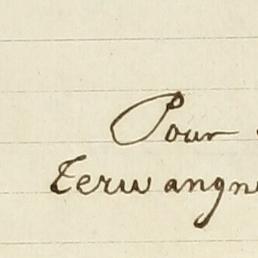 Pour
Terwangn